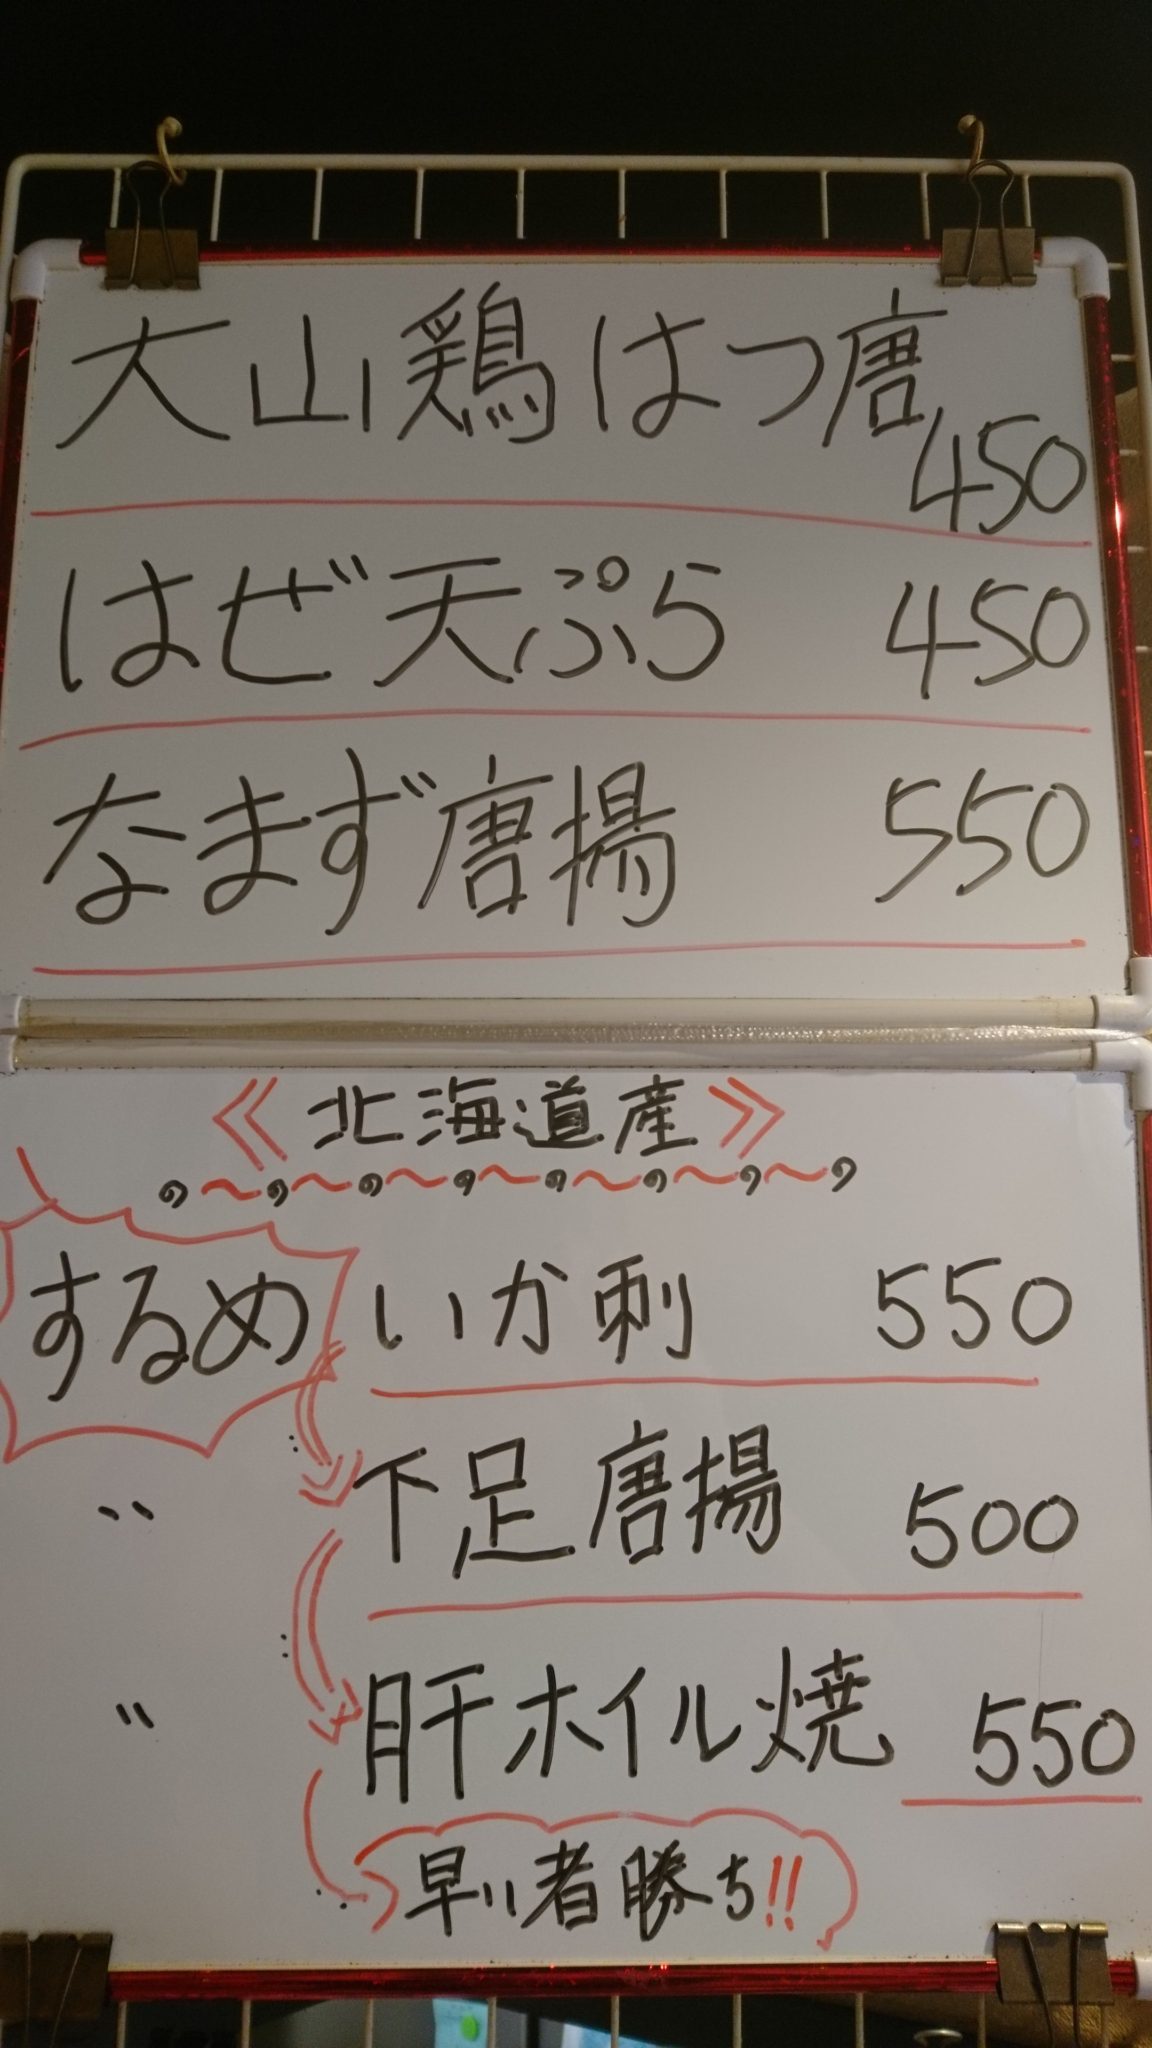 大山鶏はつ唐 450
はぜ天ぷら 450
なまず唐揚 550
《北海道産》
するめ いか刺 550
〃 下足唐揚 500
〃 肝ホイル焼 550
早い者勝ち!!